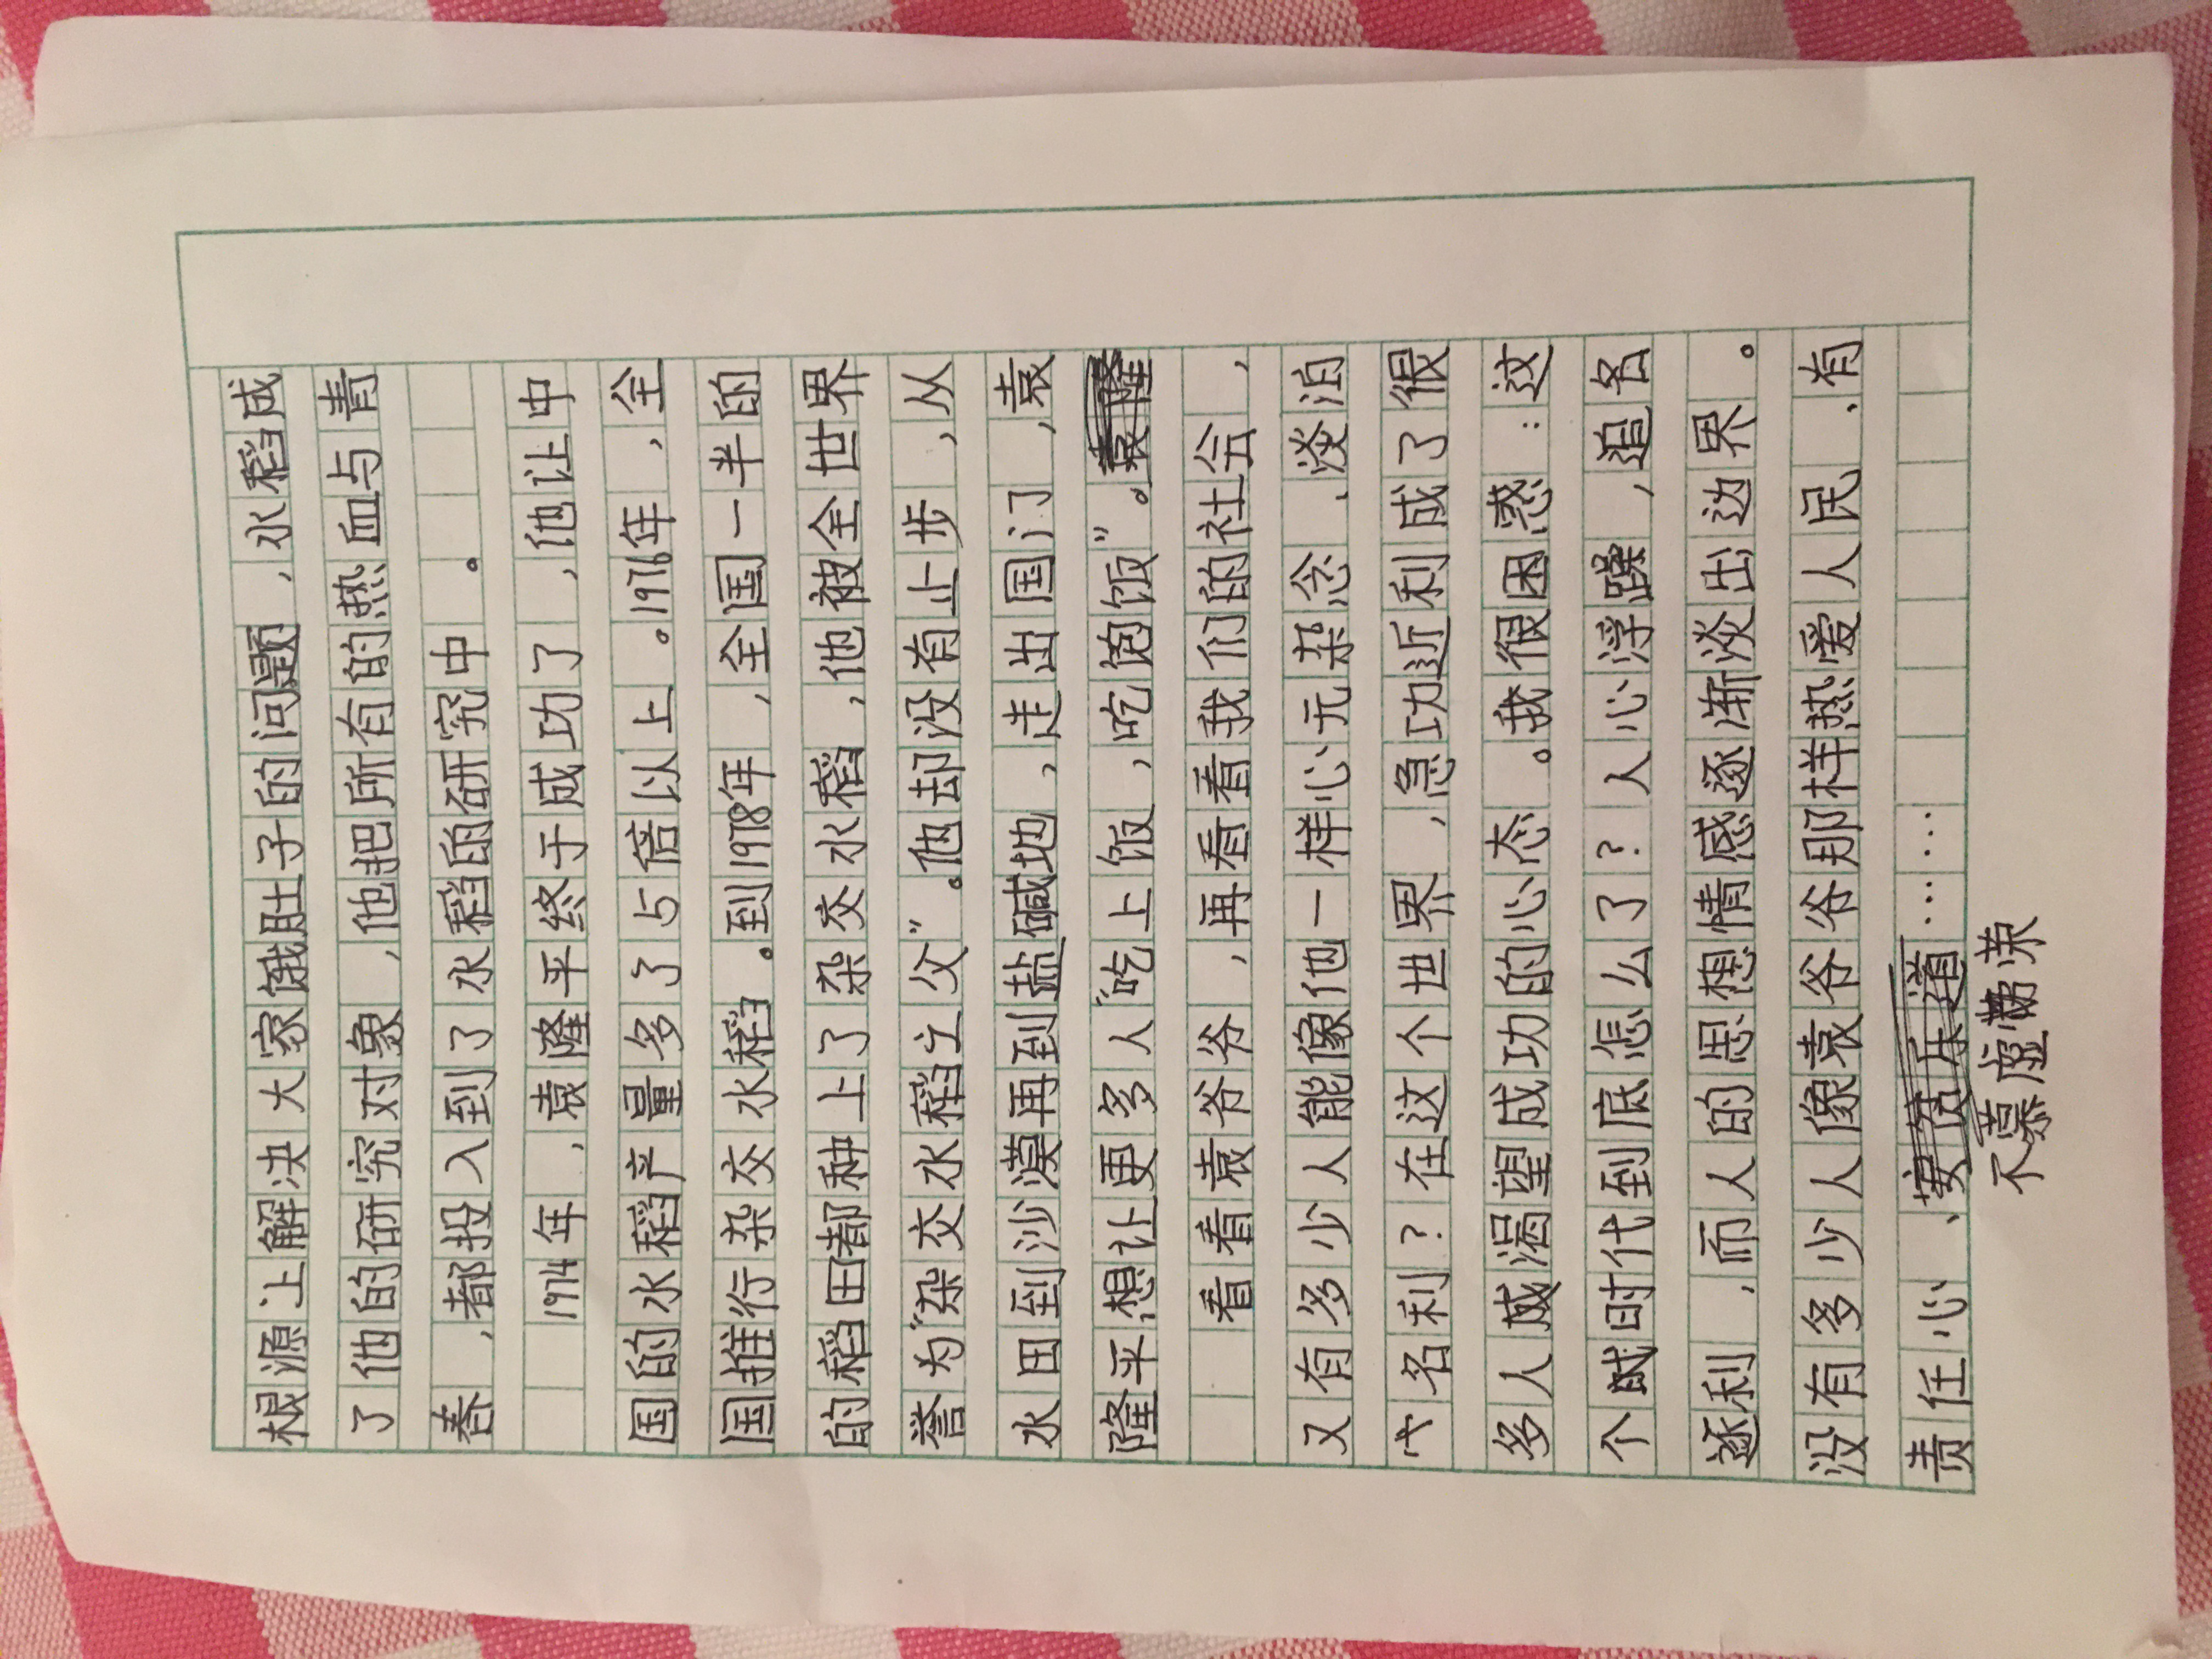 根源上解决大家饿肚子的问题，水稻成
了他的研究对象，他把所有的热血与青
春，都投入到了水稻的研究中。
1974年，袁隆平终于成功了，他让中
国的水稻产量多了5倍以上。1976年，全
国推行杂交水稻。到1978年，全国一半的
的稻田都种上了杂交水稻，他被全世界
誉为“杂交水稻立父”。他却没有止步，从
水田到沙漠再到盐碱地，走出国门，袁
隆平想让更多人“吃上饭，吃饱饭”。
看看袁爷爷，再看看我们的社会，
又有多少人能像他一样心元杂念、淡泊
名利？在这个世界，急功近利成了很
多人渴望成功的心态。我很困惑：这
个时代到底怎么了？人心浮躁，追名
逐利，而人的思想情感逐渐淡出边界。
没有多少人像袁爷爷那样热爱人民、有
责任心、……
不慕虚荣